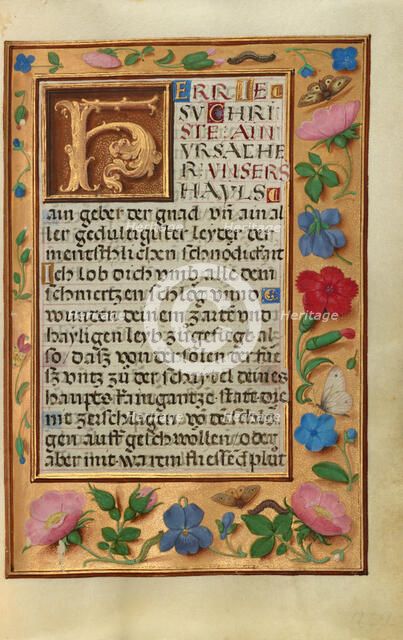 HERR IE
SV CHRI
STE AIN
VRSACHE
R VNSERS
HAYLS
ain geber der gnad vn̄ ain al
ler gedultigister leyder der
mentschlichen schnödickait
Ich lob dich vmb alle dein
schmertzen schleg vnnd
wunden deinem zarte vnd
hayligen leyb zugefiegt al
so / daß von der solen der fue
ß vntz zů der schaytel deines
haupts kain gantze statt die
nit zerschlagen võ de schle
gen auff geschwollen / oder
aber mit warem fliessēd plůt
Heritage
Images